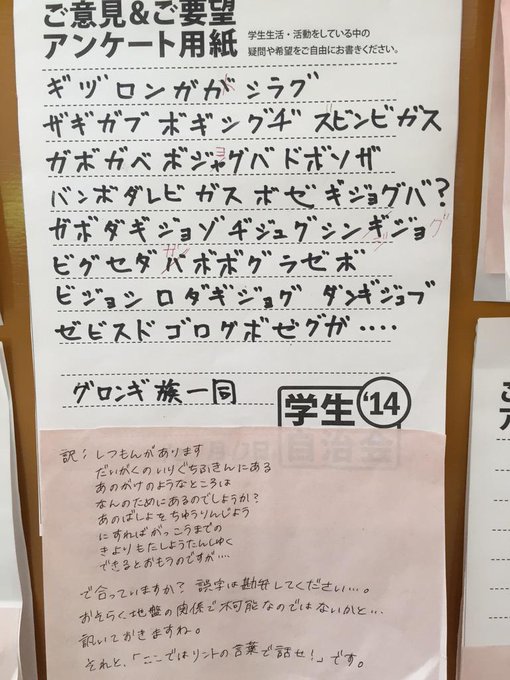 ご意見&ご要望
アンケート用紙
学生生活・活動をしている中の
疑問や希望をご自由にお書きください。
ギヅロンガガ シラグ
ザギガブ ボギシグヂ ズビンビガス
ョ
ガボガベ ボジャグバ ドボソザ
バンボダレビ ガス ボゼ ギジョグバ?
ガボダギジョゾ ヂジュグシンギジョグ
ジ
ガン
ビグセダ バボボグ ラゼボ
ビジョシ ロダギジョグ ダンギジュブ
ゼビスド ゴログボゼグガ ‥‥
グロンギ族一同
学生 '14
自治会
訳: しつもんがあります
だいがくのいりぐちふきんにある
あのがけのようなところは
なんのためにあるのでしょうか?
あのばしょをちゅうりんじょう
にすればがっこうまでの
きょりもたしょうたんしゅく
できるとおもうのですが‥‥
で合っていますか? 誤字は勘弁してください…。
おそらく地盤の関係で不可能なのではないかと…
訊いておきますね。
それと、「ここではリントの言葉で話せ!」です。